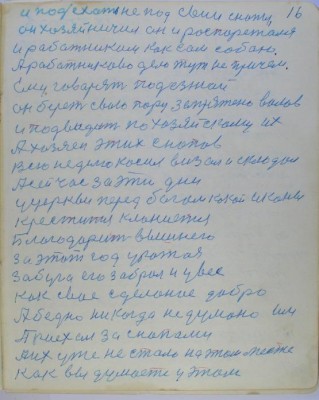 16
и подъехать не под свои снопы
он хозяйничил он и роспорежался
и работником как сам собою.
А работниково дело тут не причем.
Ему говарят подезжай
он берет свою пару запряжено валов
и подводит по хозяйскому их
А хозяен этих снопов
всю неделю косил вязал и складал
А сейчас за эти дни
у церкви перед богом
крестится кланяется
Благодарит
за этот год урожая
забула его забрал и увез
как свое сделаное добро
А бедно никогда не думано им
Приехал за снопами
А их уже не стало на том месте
Как вы думаете у этом